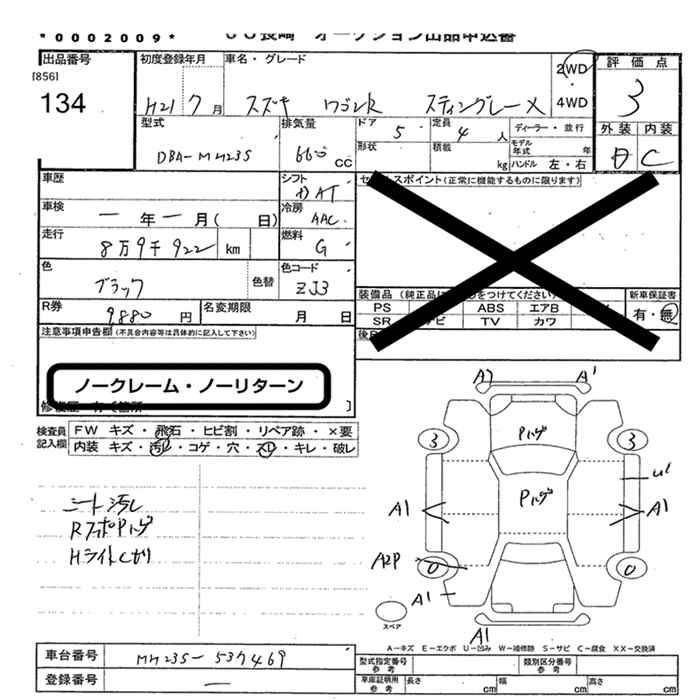 *0002009*
JU長崎 オークション出品申込書
出品番号
[856]
134
初度登録年月
H21 7月
車名・グレード
スズキ ワゴンR スティングレーX
2WD
4WD
評価点
3
外装 内装
C
型式
DBA-MH23S
排気量
660 CC
ドア
5
定員
4 人
形状
積載
kg
ディーラー・並行
モデル年式 年
ハンドル 左・右
車歴
シフト
AT
セールスポイント(正常に機能するものに限ります)
車検
一年一月( 日)
冷房
AAC
走行
8万9千922 km
燃料
G
色
ブラック
色替
色コード
ZJ3
装備品
PS ABS エアB
SR TV カワ
新車保証書
有・無
R券
9880円
名変期限
月 日
注意事項申告欄(不具合内容等は具体的に記入して下さい)
ノークレーム・ノーリターン
検査員記入欄
FW キズ・飛石・ヒビ割・リペア跡・×要
内装 キズ・汚れ・コゲ・穴・スレ・キレ・破レ
シート汚れ
RフッボPハゲ
Hライトくもり
A1 A1
Pハゲ
3 3
U1
Pハゲ
A1 A1
A2P
0 0
A1
スペア
A1
A―キズ E―エクボ U―凹み W―補修跡 S―サビ C―腐食 XX―交換済
車台番号
MH23S-537469
登録番号
―
型式指定番号 参考
類別区分番号 参考
車庫証明用 参考
長さ cm
幅 cm
高さ cm